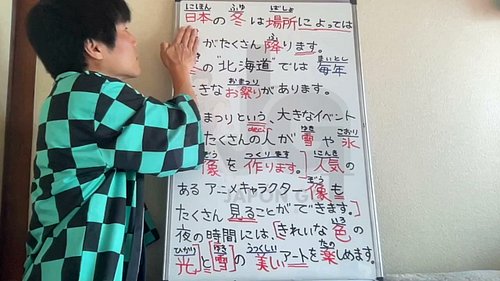 にほん ふゆ ばしょ
日本の冬は場所によっては
ふ
がたくさん降ります。
まいとし
の"北海道"では毎年
おまつり
きなお祭りがあります。
まつりという、大きなイベント
ゆき こおり
たくさんの人が雪や氷
つくります にんき
像を作ります。]人気の
ぞう
あるアニメキャラクター像も
たくさん見ることができます。]
いろ
夜の時間には、[きれいな色の
ひかり ゆき うつくしい たの
光]と[雪]の美しいアートを楽しめます。